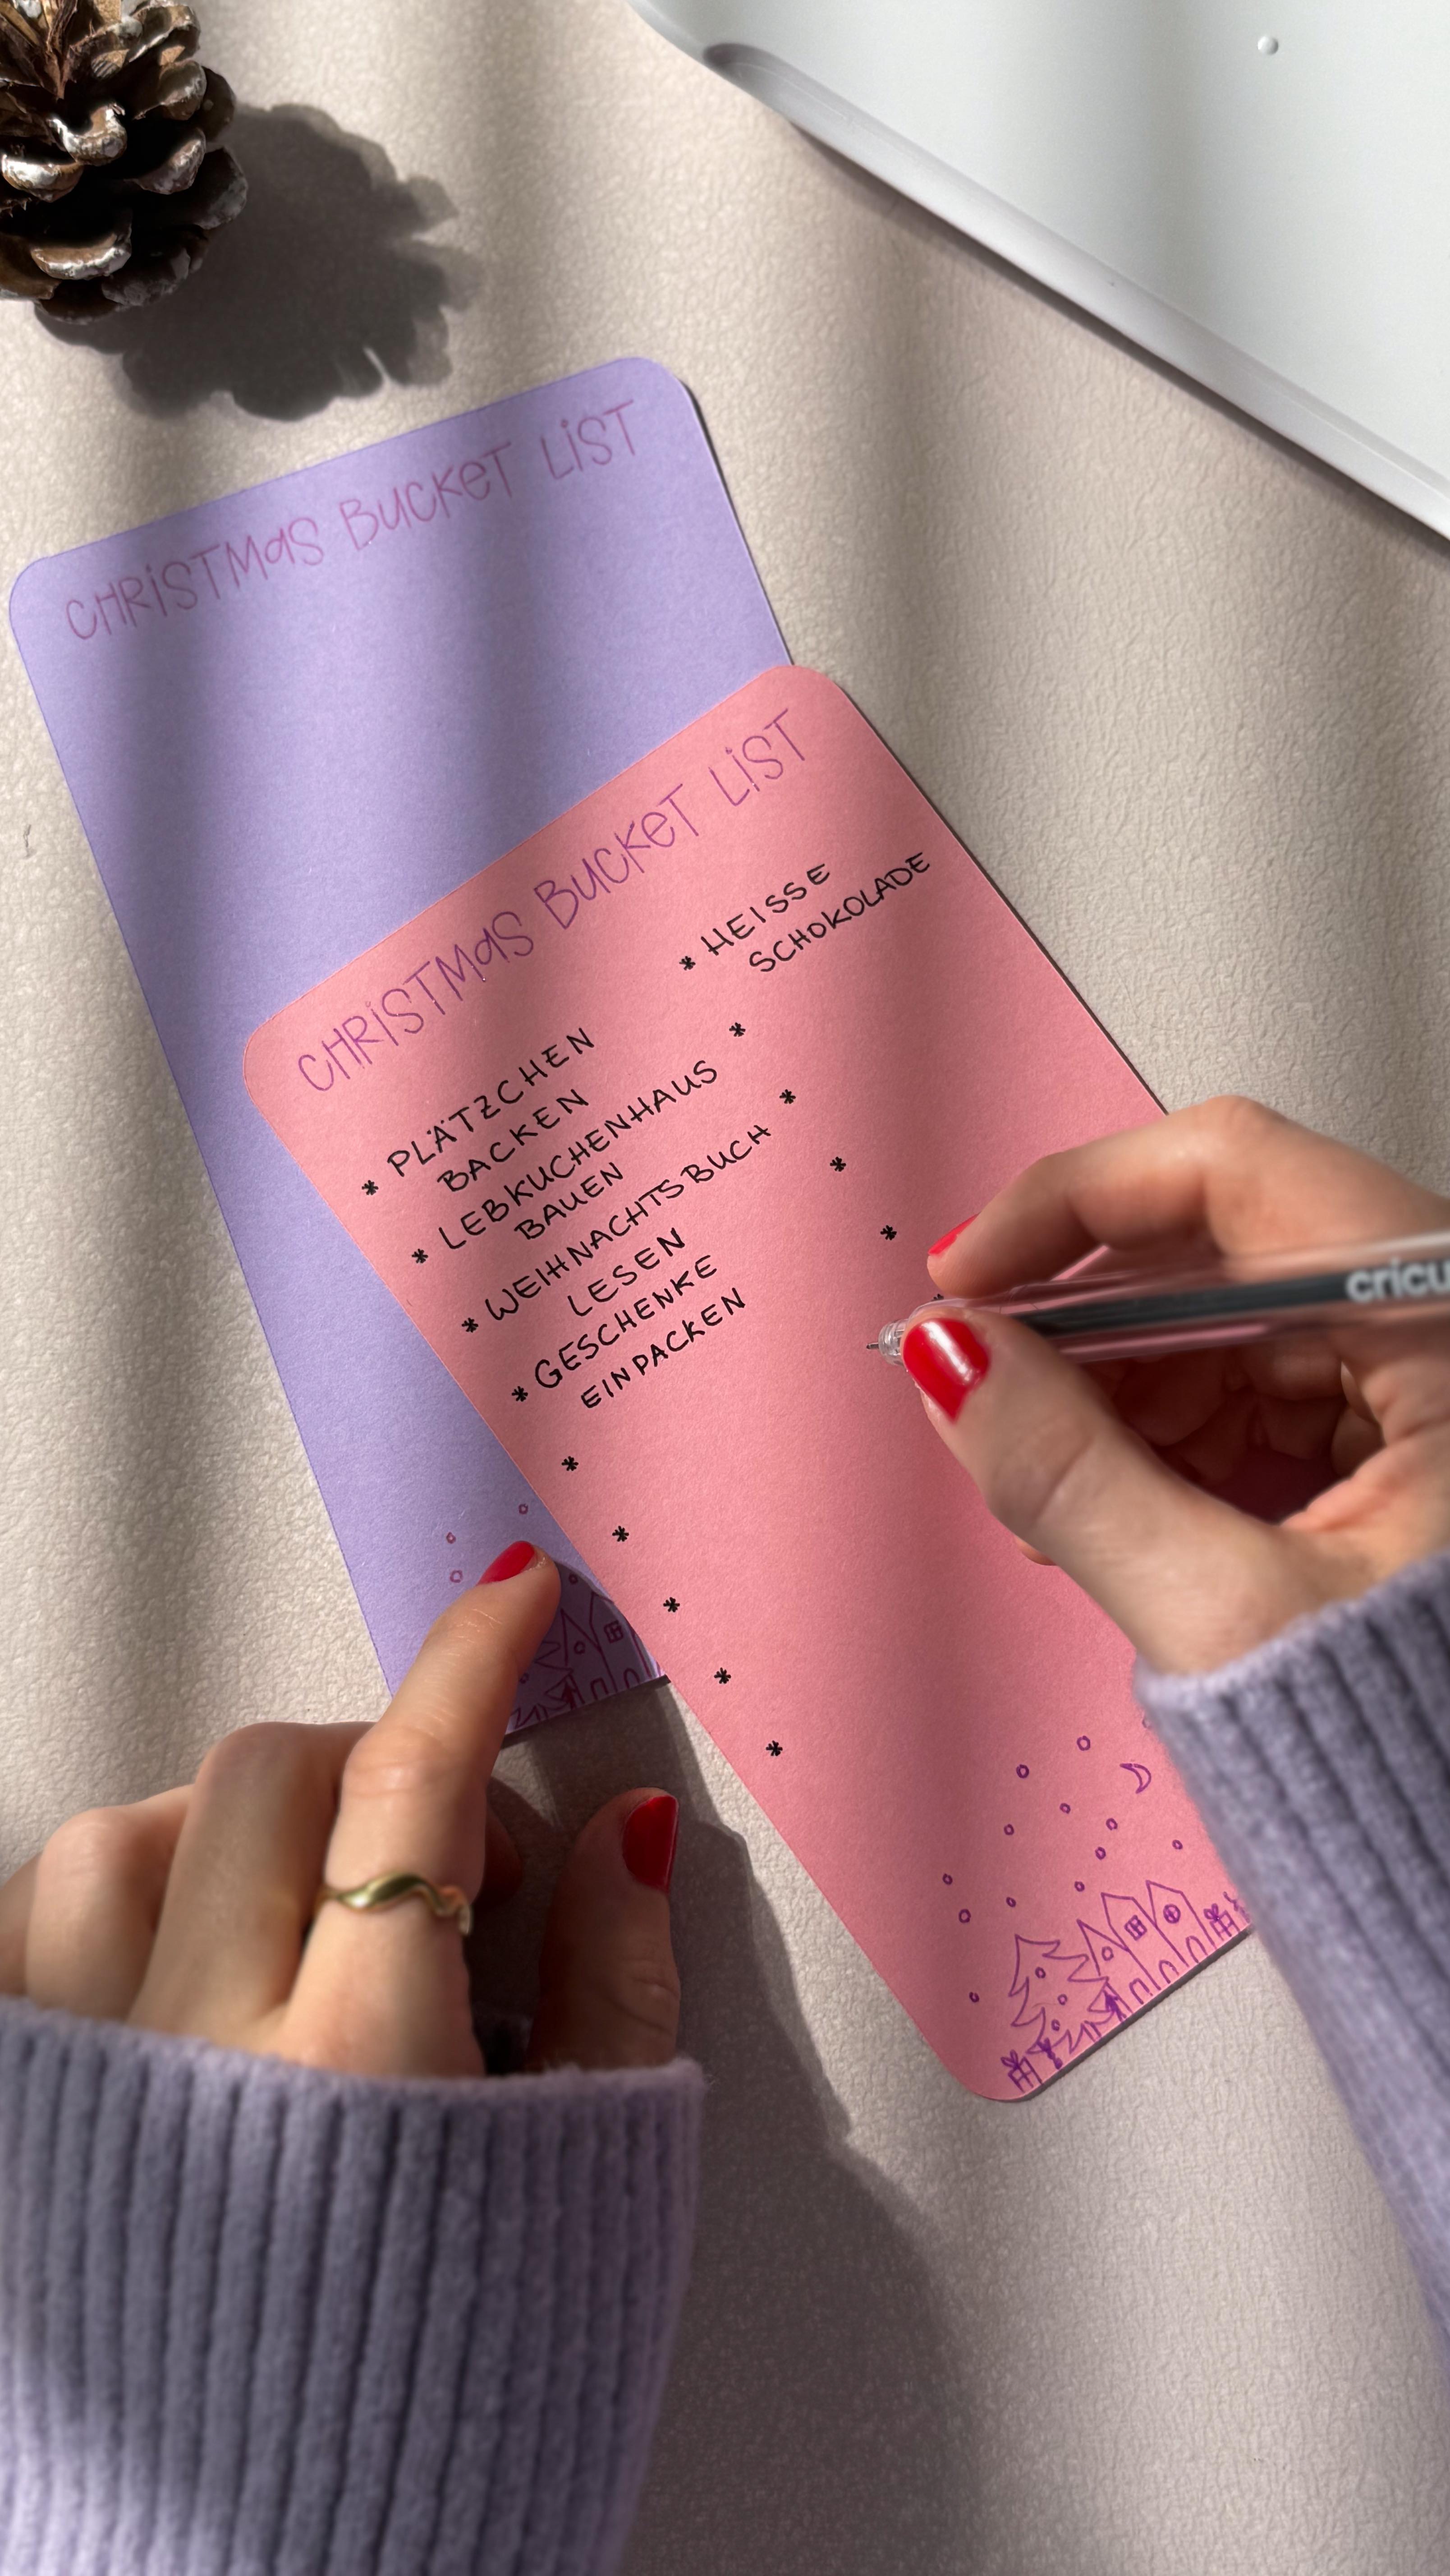 CHRISTMAS BUCKET LIST
CHRISTMAS BUCKET LIST
* PLÄTZCHEN
BACKEN
* LEBKUCHENHAUS
BAUEN
* WEIHNACHTSBUCH
LESEN
* GESCHENKE
EINPACKEN
*
*
*
*
*
* HEISSE
SCHOKOLADE
*
*
*
*
cricu